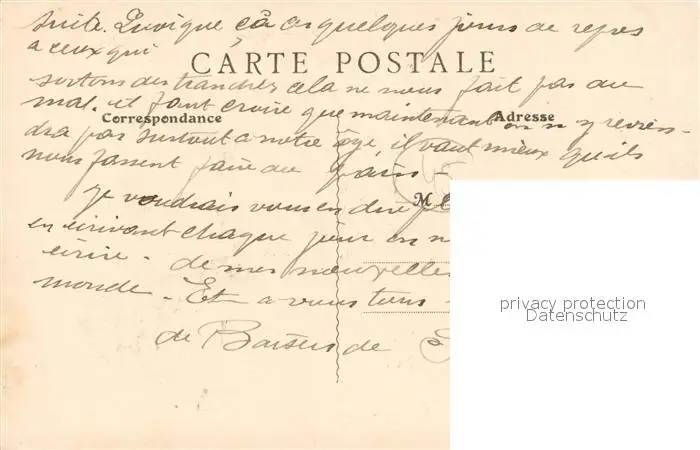 suite. Quoique ça ces quelques jours de repos
a ceux qui
CARTE POSTALE
sortons des tranchés cela ne nous fait pas du
mal. et faut croire que maintenant on n y revien-
Correspondance
Adresse
dra pas surtout a notre âge, il vaut mieux qu'ils
nous fassent faire du
Je voudrais vous en dire
M
en écrivant chaque jour
écrire - de mes nouvelles
monde - Et a vous tous
de Baisers de
privacy protection
Datenschutz